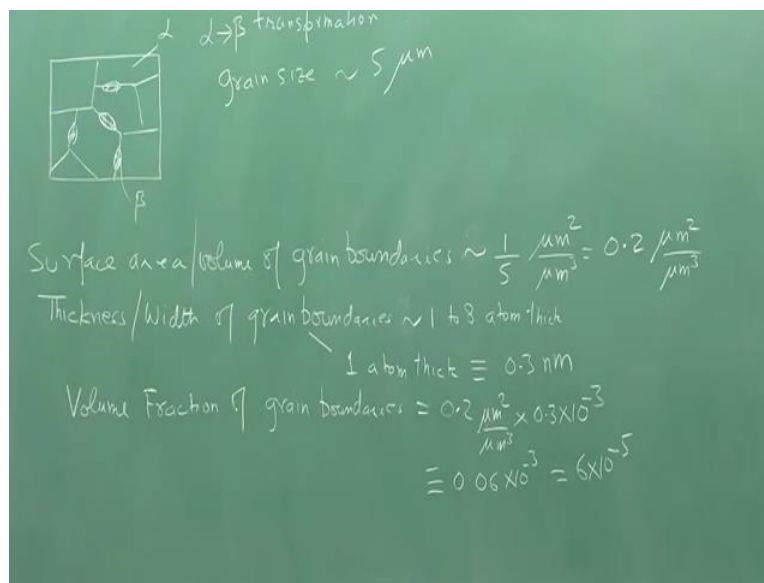 α α→β transformation
grain size ~ 5 μm
β
Surface area/volume of grain boundaries ~ 1/5 μm²/μm³ = 0.2 μm²/μm³
Thickness/Width of grain boundaries ~ 1 to 3 atom thick
1 atom thick ≡ 0.3 nm
Volume Fraction of grain boundaries ≡ 0.2 μm²/μm³ × 0.3×10⁻³
≡ 0.06×10⁻³ = 6×10⁻⁵